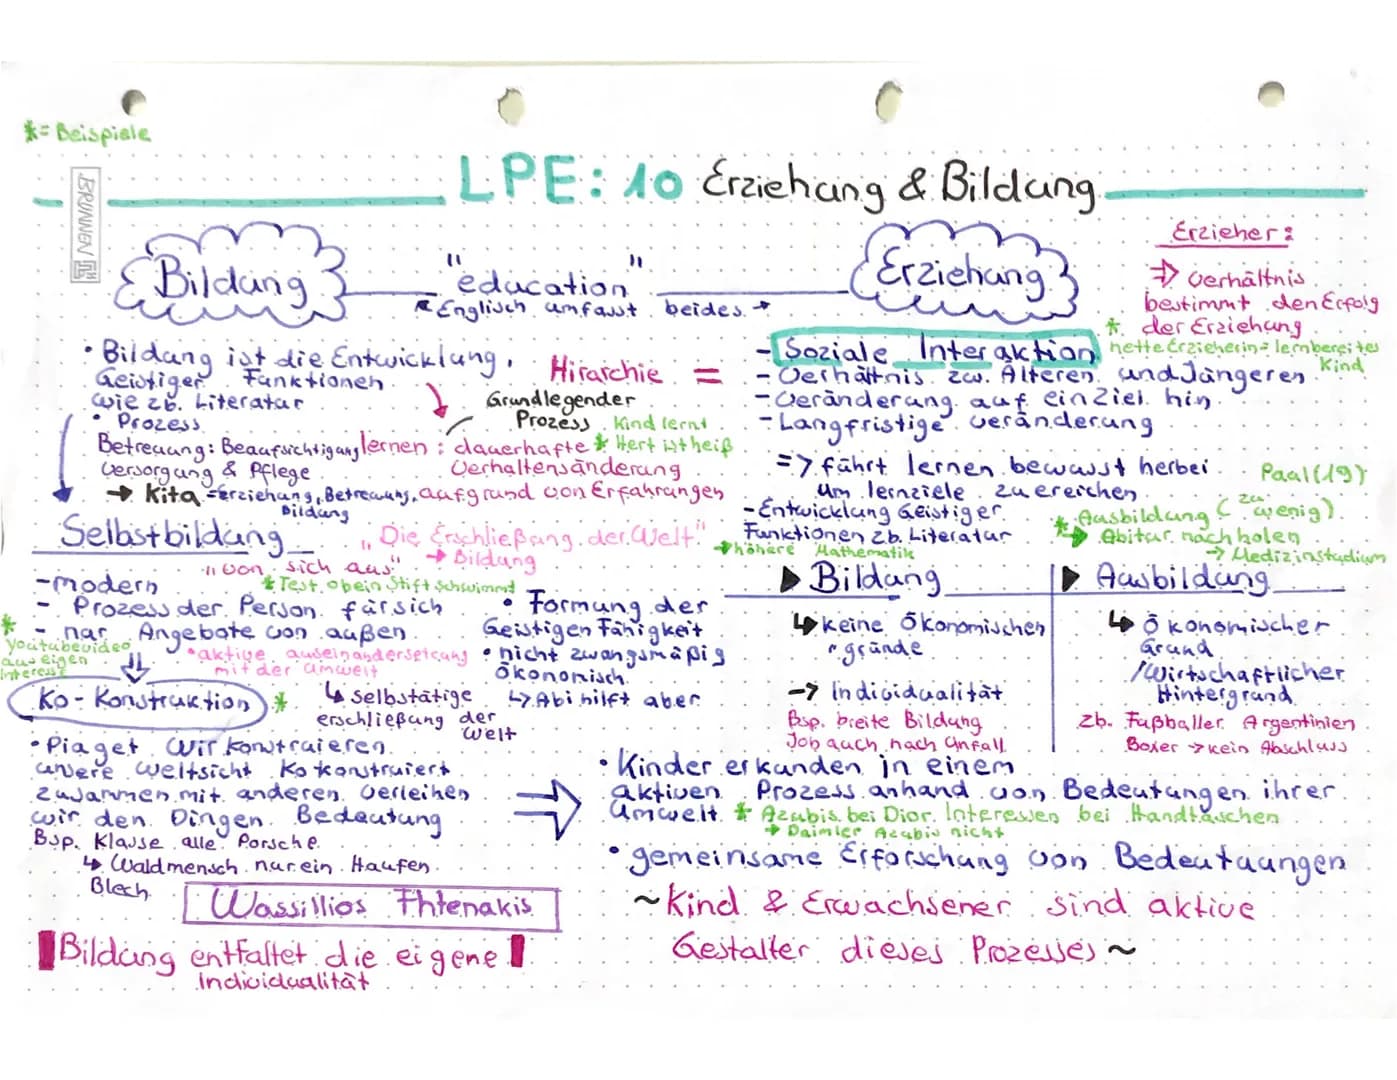 *= Beispiele
BRUNNEN
LPE: 10 Erziehung & Bildung
Bildung
"education"
Englisch umfasst beides
Erziehung
Erzieher:
⇒ Verhältnis
bestimmt den Erfolg
der Erziehung
* nette Erzieherin = lernbereites
Kind
• Bildung ist die Entwicklung
Geistiger Funktionen
wie zb. Literatur
• Prozess
Betreuung: Beaufsichtigung
Versorgung & Pflege
→ Kita = Erziehung, Betreuung,
Bildung
Hirarchie =
Grundlegender
Prozess
lernen: dauerhafte
Verhaltensänderung
aufgrund von Erfahrungen
Kind lernt
* Hert ist heiß
- Soziale Interaktion
- Verhältnis zw. Älteren und Jüngeren
- Veränderung auf ein Ziel hin
- Langfristige veränderung
=> führt lernen bewusst herbei
um lernziele zu ereichen
- Entwicklung Geistiger
Funktionen zb. Literatur
→ höhere Mathematik
Paal (19)
* Ausbildung (zu wenig)
→ Abitur nachholen
→ Medizinstudium
Selbstbildung
"von sich aus"
"Die Erschließung der Welt"
→ Bildung
- modern
* Test, ob ein Stift schwimmt
- Prozess der Person für sich
- nur Angebote von außen
* Youtubevideo
aus eigen
Interesse
• aktive auseinandersetzung
mit der umwelt
↳ selbstätige
erschließung der
Welt
• Formung der
Geistigen Fähigkeit
• nicht zwangsmäßig
Ökonomisch
↳ Abi hilft aber
▶ Bildung
↳ keine Ökonomischen
gründe
→ Individualität
Bsp. breite Bildung
Job auch nach Unfall
▶ Ausbildung
↳ Ökonomischer
Grund
/Wirtschaftlicher
Hintergrund
zb. Fußballer Argentinien
Boxer → kein Abschluss
Ko-Konstruktion *
• Piaget wir konstruieren
unsere weltsicht Ko konstruiert
zusammen mit anderen verleihen
wir den Dingen Bedeutung
Bsp. Klasse alle Porsche
↳ Waldmensch nur ein Haufen
Blech
Wassillios Fhtenakis
Bildung entfaltet die eigene
Individualität
• Kinder erkunden in einem
aktiven Prozess anhand von Bedeutungen ihrer
Umwelt * Azubis bei Dior Interessen bei Handtaschen
→ Daimler Azubis nicht
• gemeinsame Erforschung von Bedeutuungen
~ Kind & Erwachsener sind aktive
Gestalter dieses Prozesses ~